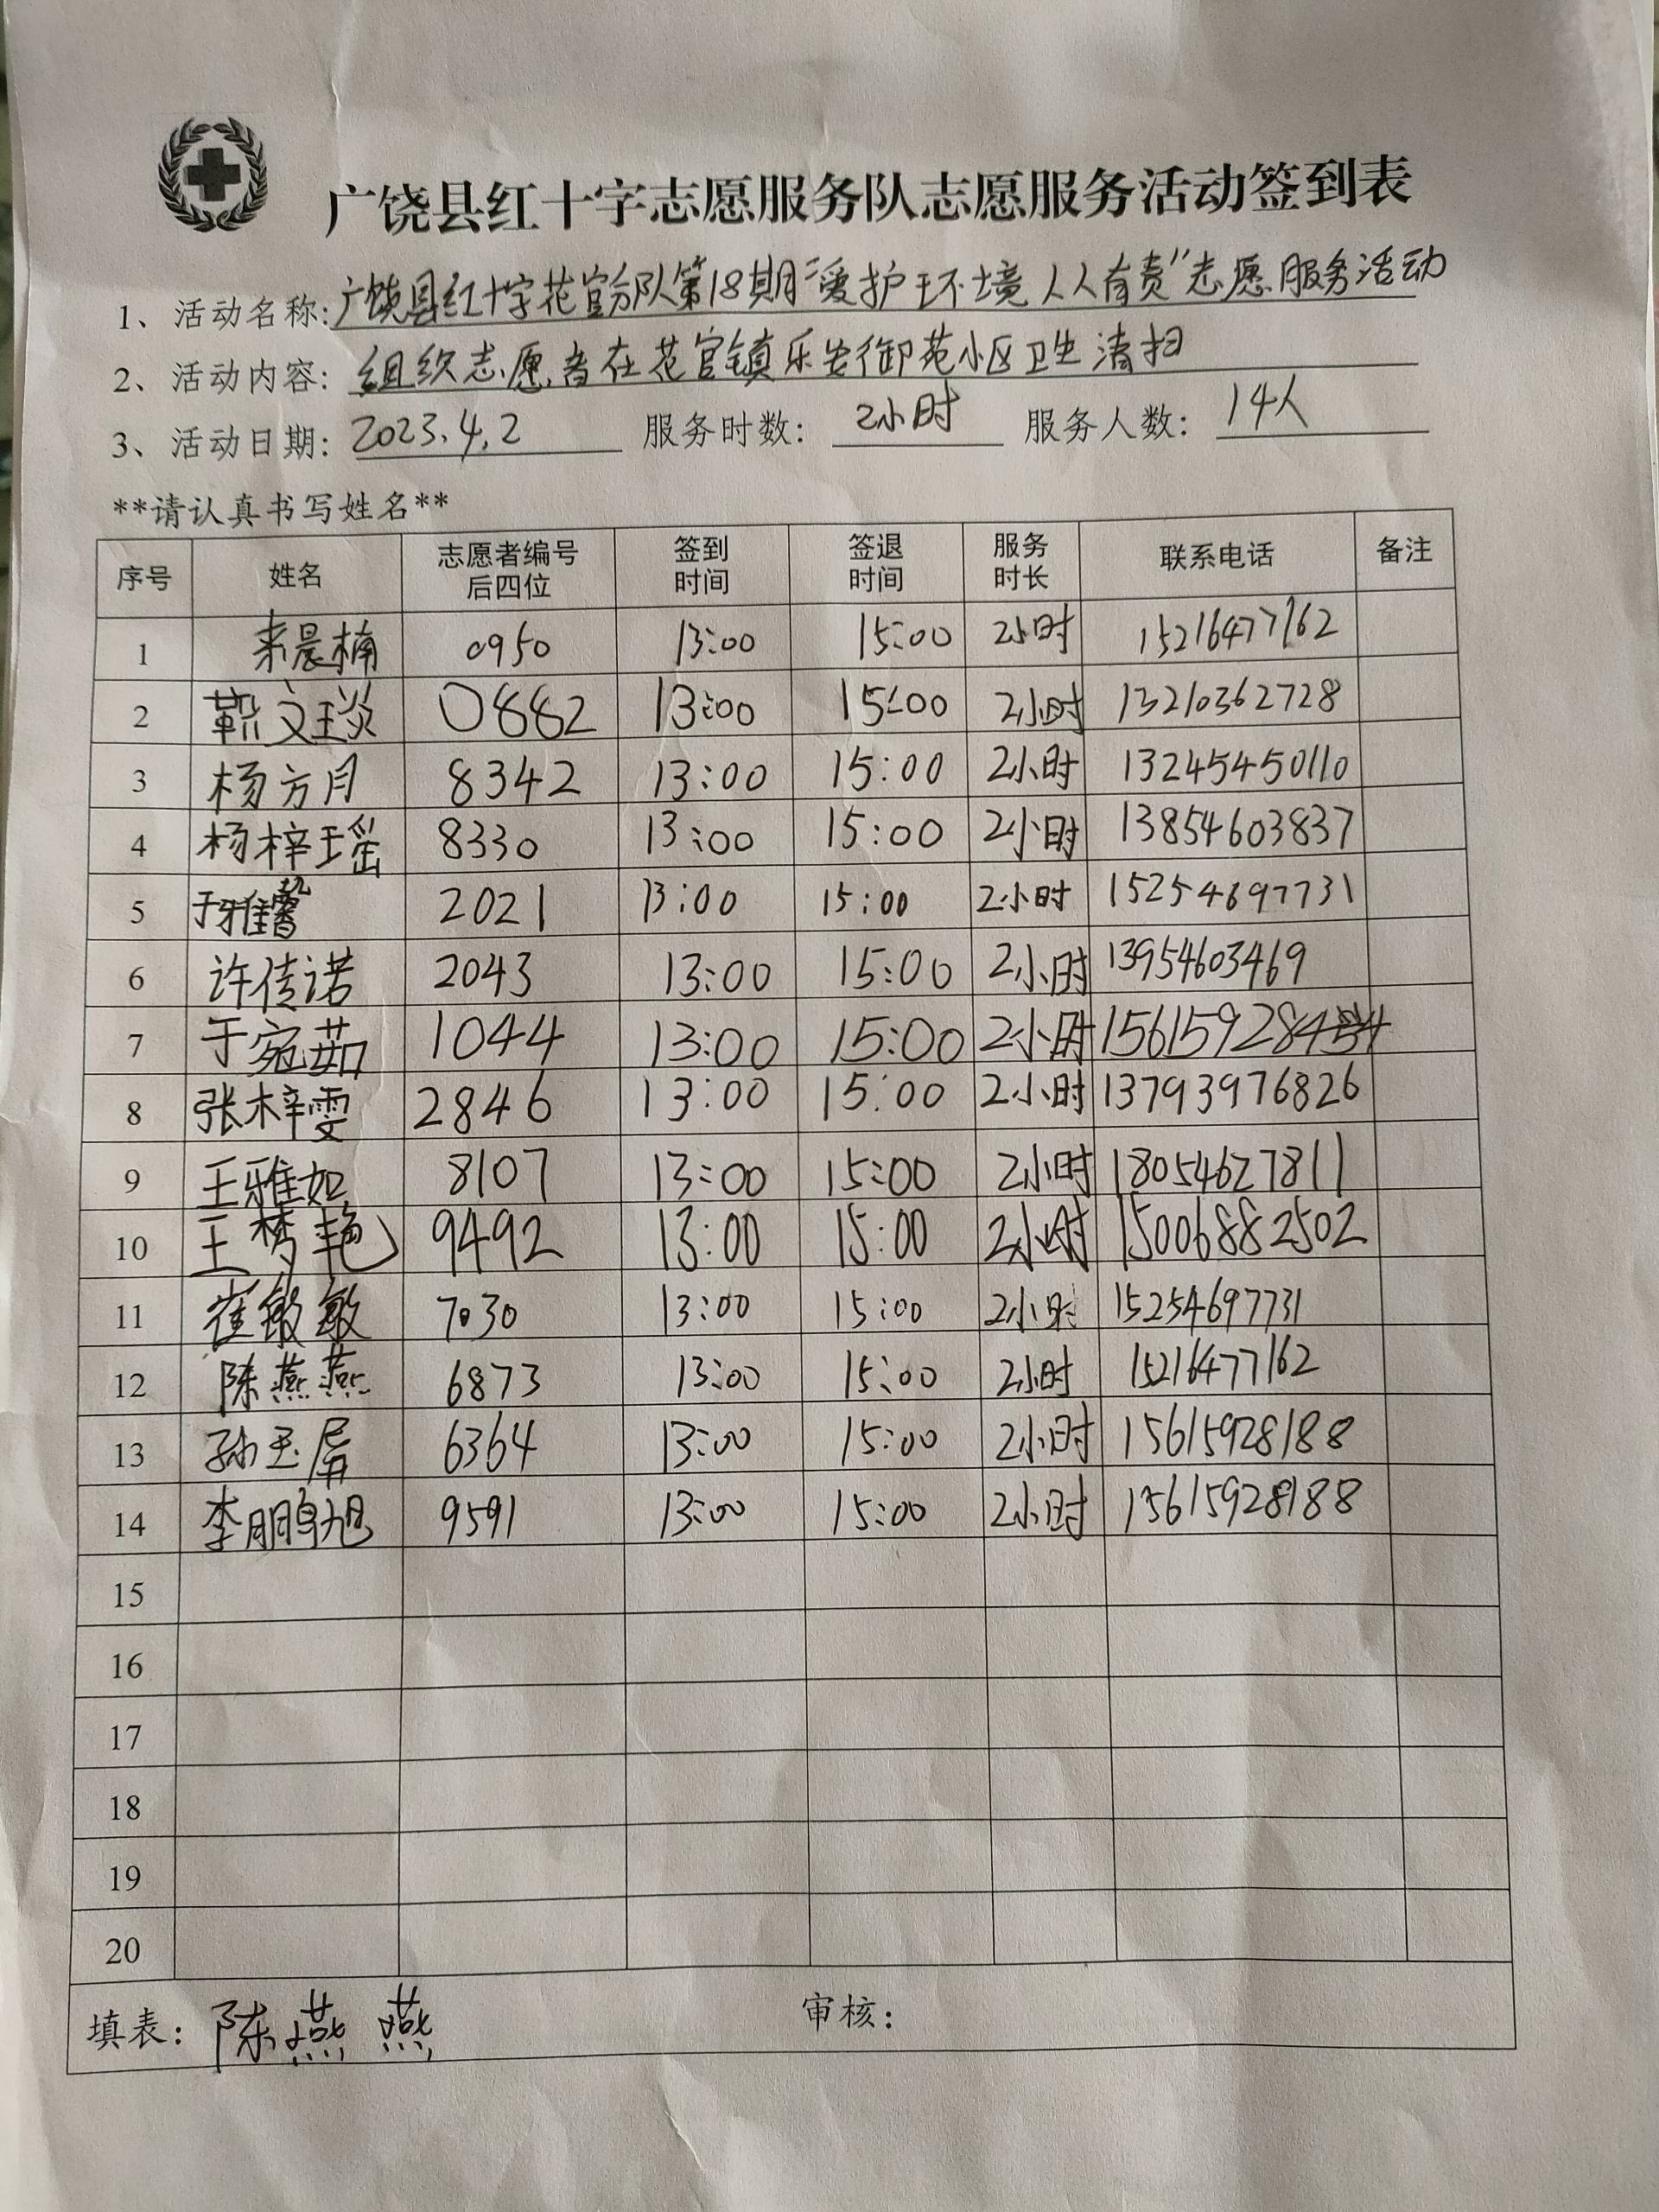 广饶县红十字志愿服务队志愿服务活动签到表
1、活动名称:广饶县红十字花官分队第18期"爱护环境人人有责"志愿服务活动
2、活动内容:组织志愿者在花官镇乐安御苑小区卫生清扫
3、活动日期:2023.4.2 服务时数:2小时 服务人数:14人
**请认真书写姓名**
序号 姓名 志愿者编号后四位 签到时间 签退时间 服务时长 联系电话 备注
1 来晨楠 0950 13:00 15:00 2小时 15216477162
2 靳文琰 0882 13:00 15:00 2小时 13210362728
3 杨方月 8342 13:00 15:00 2小时 13245450110
4 杨梓瑶 8330 13:00 15:00 2小时 13854603837
5 于雅馨 2021 13:00 15:00 2小时 15254697731
6 许传诺 2043 13:00 15:00 2小时 13954603469
7 于宛茹 1044 13:00 15:00 2小时
8 张梓雯 2846 13:00 15:00 2小时 13793976826
9 王雅如 8107 13:00 15:00 2小时 18054627811
10 王梦艳 9492 13:00 15:00 2小时 15006882502
11 崔敏敏 7030 13:00 15:00 2小时 15254697731
12 陈燕燕 6873 13:00 15:00 2小时 15216477162
13 孙玉屏 6364 13:00 15:00 2小时 15615928188
14 李鹏旭 9591 13:00 15:00 2小时 15615928188
15
16
17
18
19
20
填表:陈燕燕 审核: